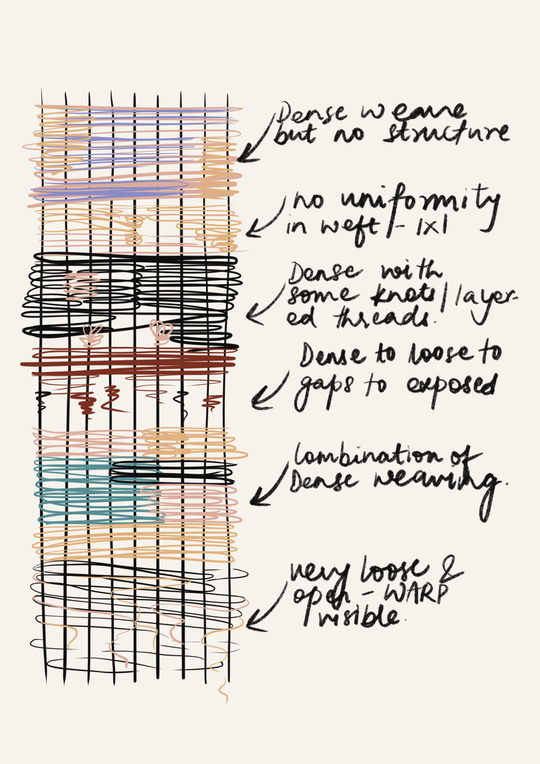 Dense weave
but no structure
no uniformity
in weft - 1x1
Dense with
some knots/layer-
ed threads.
Dense to loose to
gaps to exposed
Combination of
Dense weaving.
very loose &
open - WARP
visible.